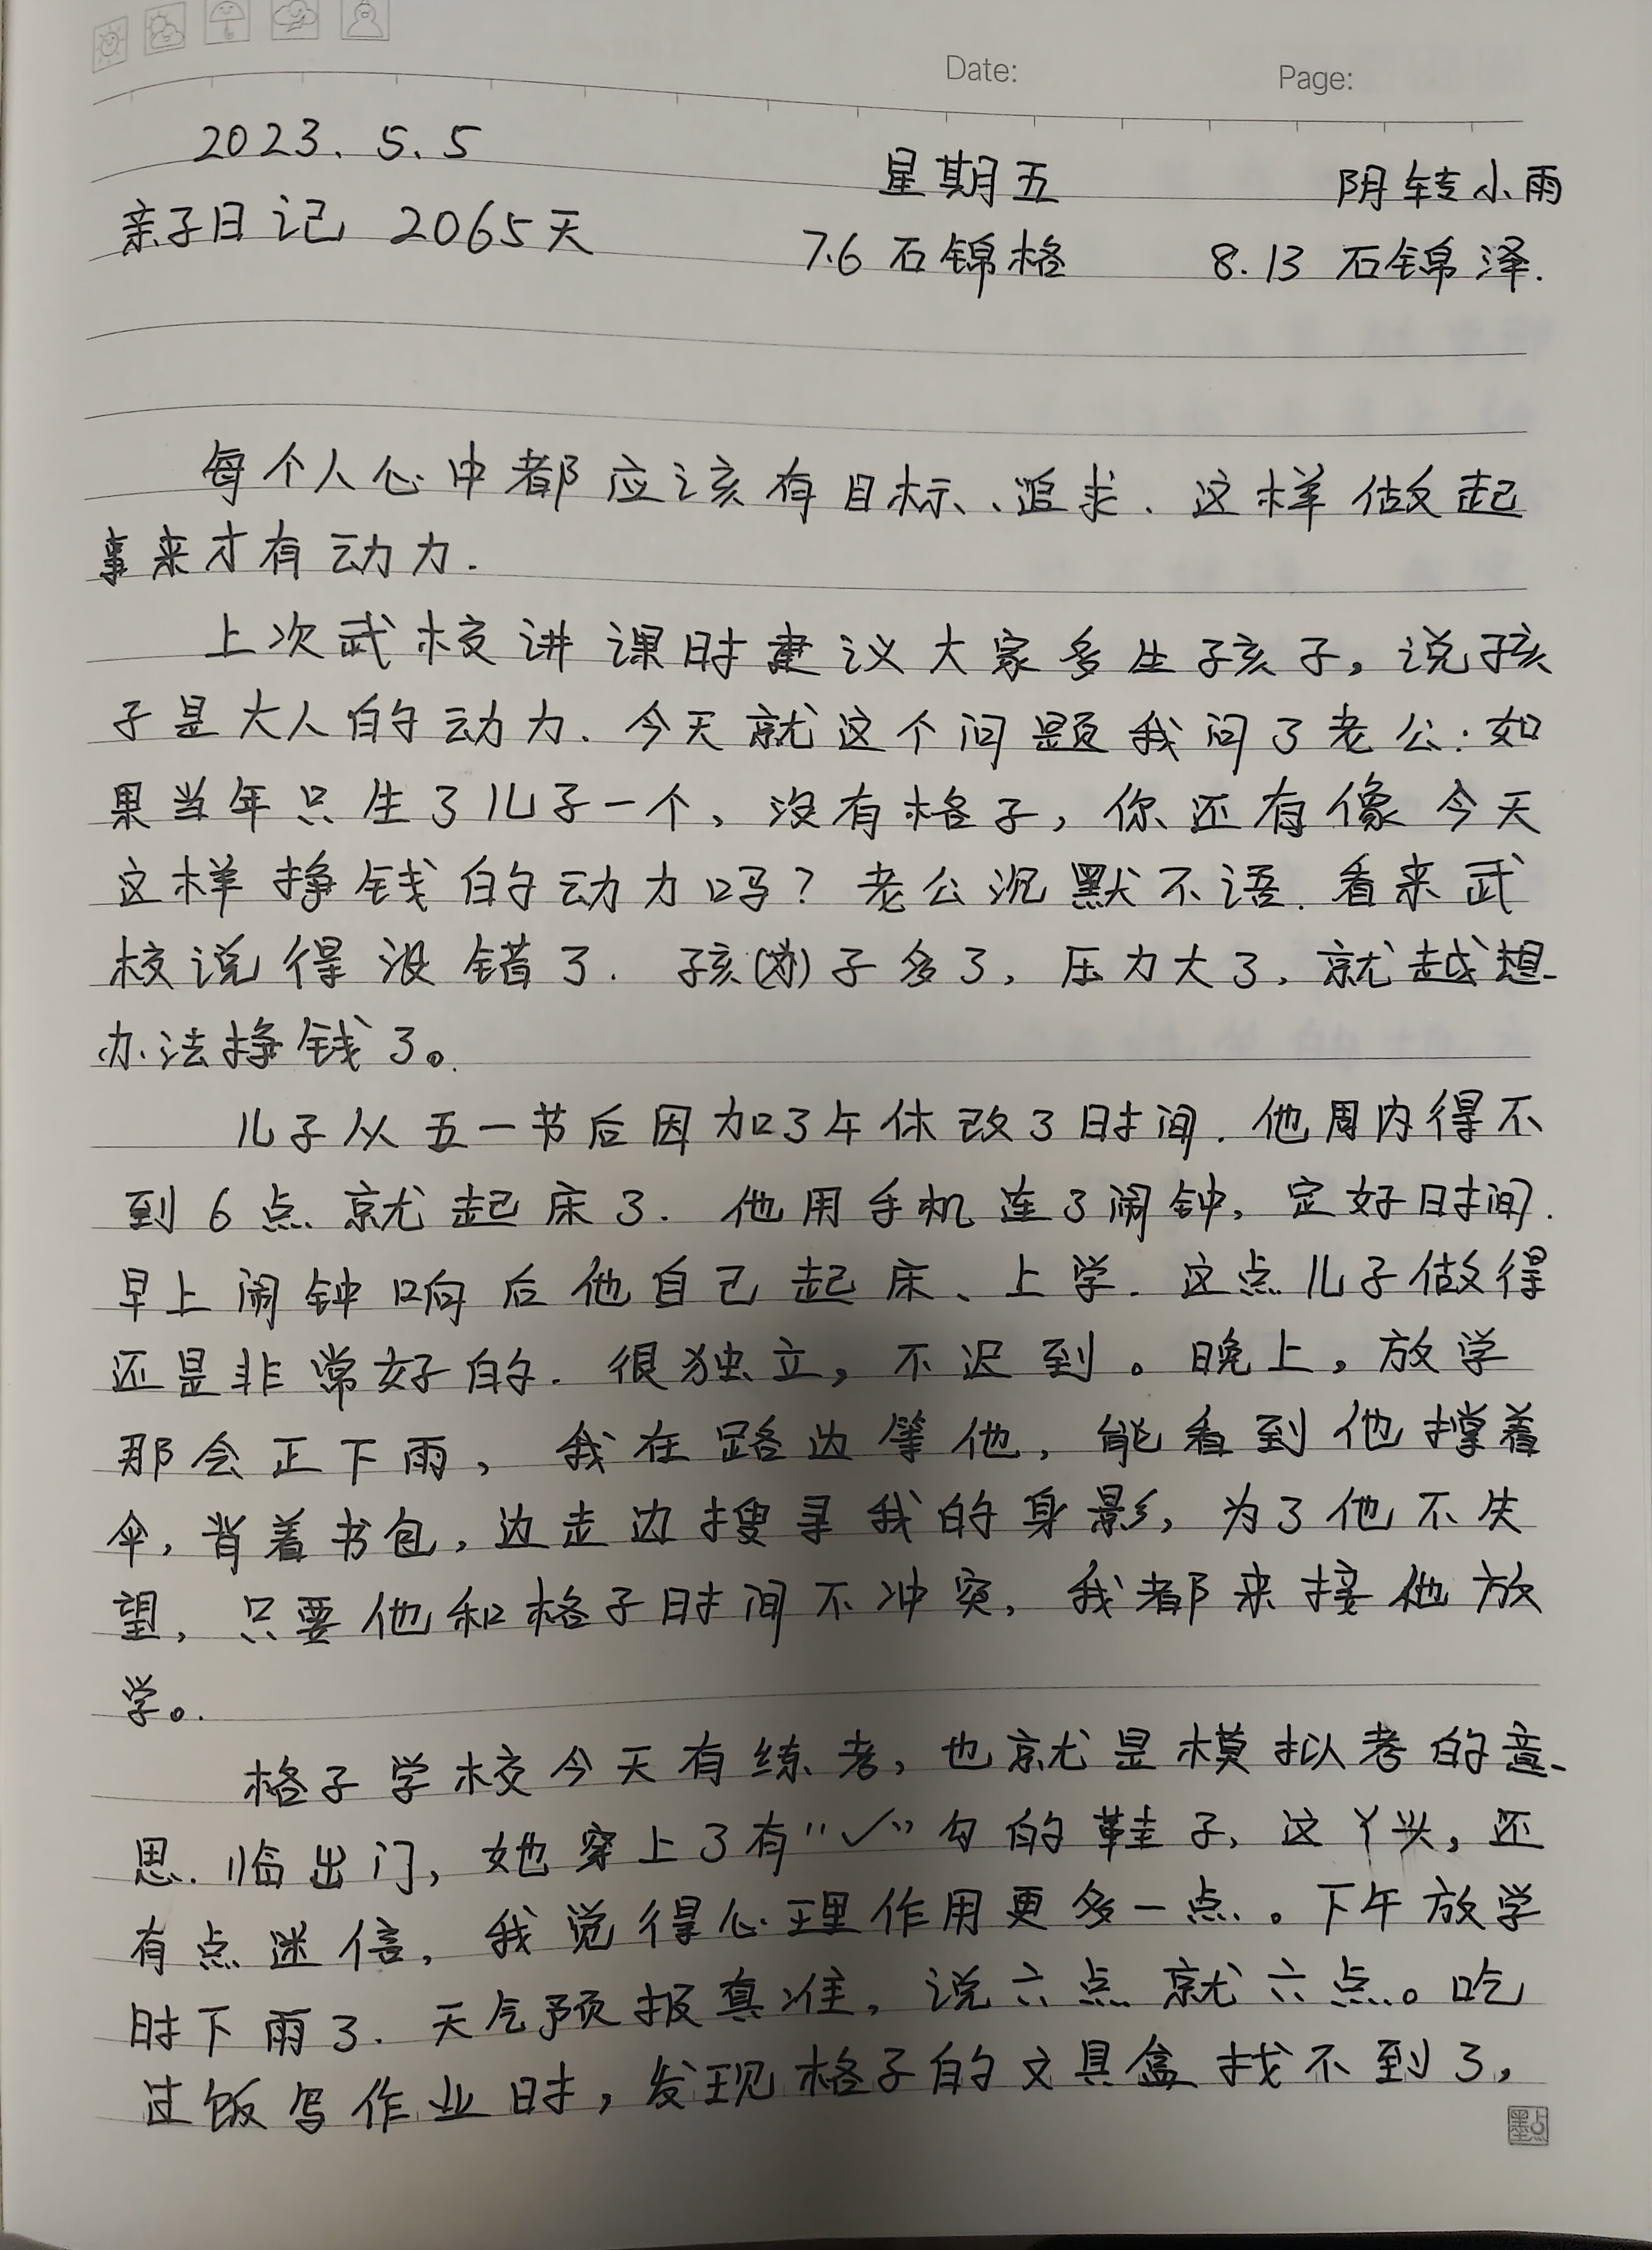 Date: Page:
2023. 5. 5 星期五 阴转小雨
亲子日记 2065天 7.6 石锦格 8.13 石锦泽.
每个人心中都应该有目标、追求. 这样做起
事来才有动力.
上次武校讲课时建议大家多生孩子,说孩
子是大人的动力. 今天就这个问题我问了老公:如
果当年只生了儿子一个,没有格子,你还有像今天
这样挣钱的动力吗?老公沉默不语. 看来武
校说得没错了. 孩()子多了,压力大了,就越想
办法挣钱了。
儿子从五一节后因加了午休改了时间. 他周内得不
到6点就起床了. 他用手机连了闹钟,定好时间.
早上闹钟响后他自己起床、上学. 这点儿子做得
还是非常好的. 很独立,不迟到。晚上,放学
那会正下雨,我在路边等他,能看到他撑着
伞,背着书包,边走边搜寻我的身影,为了他不失
望,只要他和格子时间不冲突,我都来接他放
学。
格子学校今天有练考,也就是模拟考的意
思. 临出门,她穿上了有“✓”勾的鞋子,这丫头,还
有点迷信,我觉得心理作用更多一点。下午放学
时下雨了. 天气预报真准,说六点就六点。吃
过饭写作业时,发现格子的文具盒找不到了,
墨点